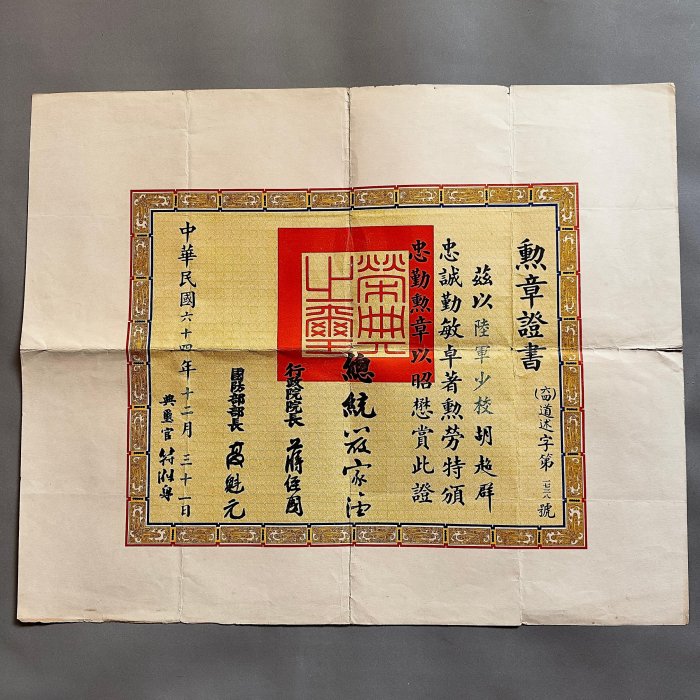 勲章證書
(六四)道述字第一七三六八號
茲以陸軍少校胡超群
忠誠勤敏卓著勲勞特頒
忠勤勲章以昭懋賞此證
榮典之璽
總統嚴家淦
行政院院長 蔣經國
國防部部長 高魁元
中華民國六十四年十二月三十一日
典璽官